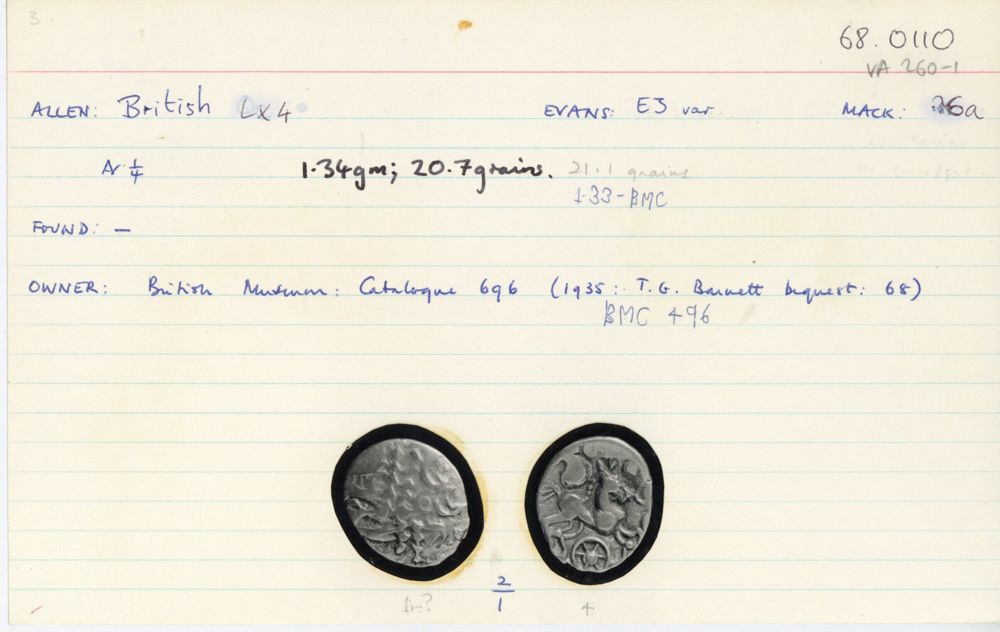 3
68.0110
VA 260-1
ALLEN: British Lx4 EVANS: E3 var MACK: 36a
AV 1/4 1.34gm; 20.7grains. 21.1 grains
1.33-BMC
FOUND: —
OWNER: British Museum: Catalogue 696 (1935: T.G. Barnett bequest: 68)
BMC 496
2/1